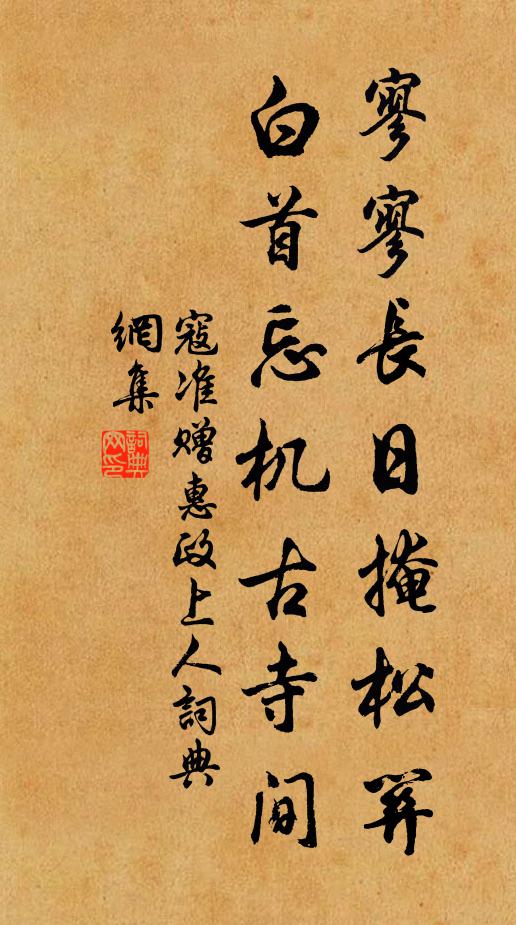 寥寥長日掩松關
白首忘机古寺間
寇准贈惠政上人詞典
網集
詞典
网印